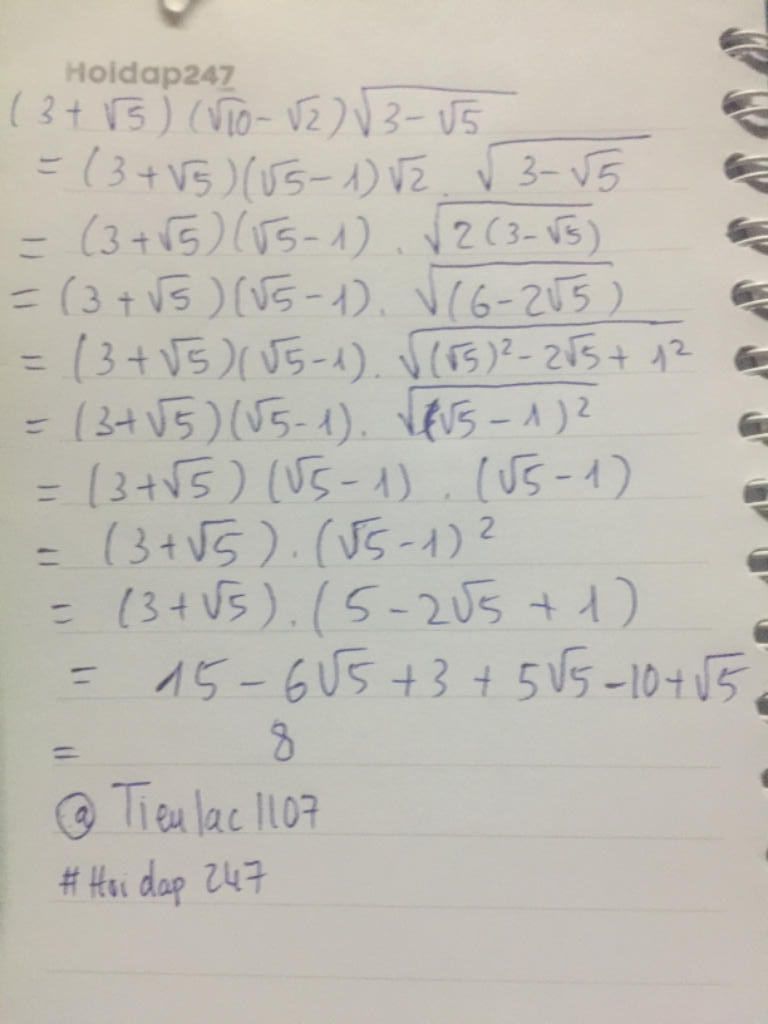 Hoidap247
(3 + √5)(√10 - √2)√(3 - √5)
= (3 + √5)(√5 - 1)√2 . √(3 - √5)
= (3 + √5)(√5 - 1) . √(2(3 - √5))
= (3 + √5)(√5 - 1) . √((6 - 2√5))
= (3 + √5)(√5 - 1) . √((√5)² - 2√5 + 1²)
= (3 + √5)(√5 - 1) . √((√5 - 1)²)
= (3 + √5)(√5 - 1) . (√5 - 1)
= (3 + √5) . (√5 - 1)²
= (3 + √5) . (5 - 2√5 + 1)
= 15 - 6√5 + 3 + 5√5 - 10 + √5
= 8
@ Tieulac1107
# Hoidap 247